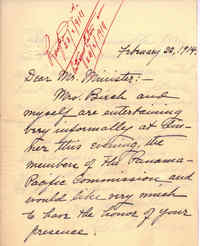 February 20, 1914.
Dear Mr. Minister:—
Mrs. Birch and
myself are entertaining
very informally at
this evening, the
members of the Panama-
Pacific Commission and
would like very much
to have the honor of your
presence.